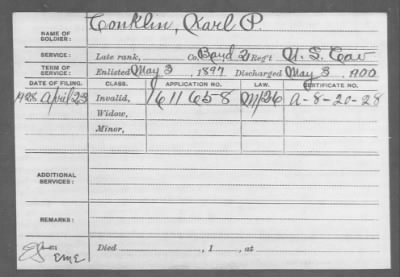 NAME OF SOLDIER: Conklin, Karl P.
SERVICE: Late rank, Co. Band 2 Reg't U. S. Cav
TERM OF SERVICE: Enlisted May 3, 1897 Discharged May 3, 1900
DATE OF FILING. CLASS. APPLICATION NO. LAW. CERTIFICATE NO.
1928 April 23 Invalid, 1611658 A-8-20-28
Widow,
Minor,
ADDITIONAL SERVICES:
REMARKS:
Died , 1 , at
EME